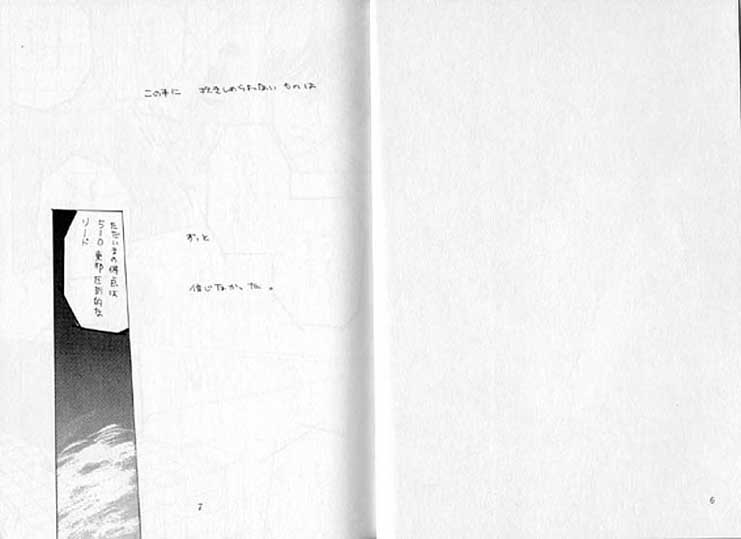 この手に 抱きしめられない ものは
ずっと
信じなかった。
ただいまの得点は
5-0 東邦圧倒的な
リード
7
6